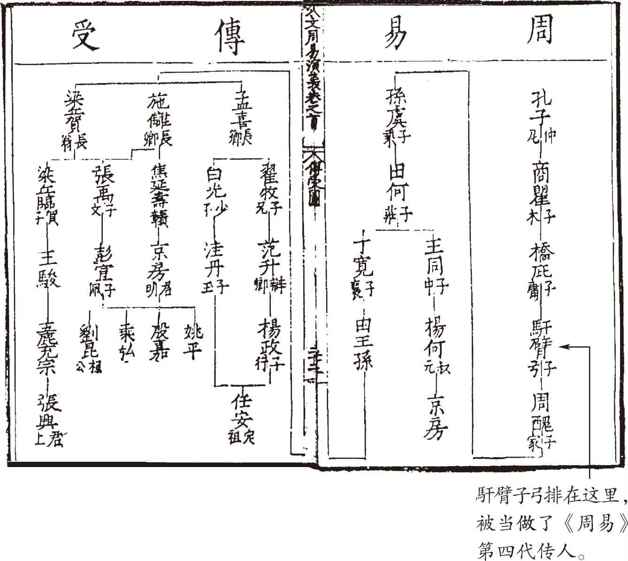 周易傳受
孔子 仲尼
商瞿 子木
橋庇 子庸
馯臂 子弓
周醜 子家
孫虞 子乘
田何 子莊
王同 子中
楊何 叔元
京房
丁寬 子襄
田王孫
文周易演義卷之首
孟喜 長卿
翟牧 子兄
范升 辯卿
楊政 子行
白光 少子
洼丹 子玉
任安 定祖
施讎 長卿
焦延壽 贛
京房 君明
姚平
殷嘉
乘弘
張禹 子文
彭宣 子佩
劉昆 祖公
梁丘賀 長翁
梁丘臨 賀子
王駿
五鹿充宗
張興 君上
馯臂子弓排在这里，
被当做了《周易》
第四代传人。